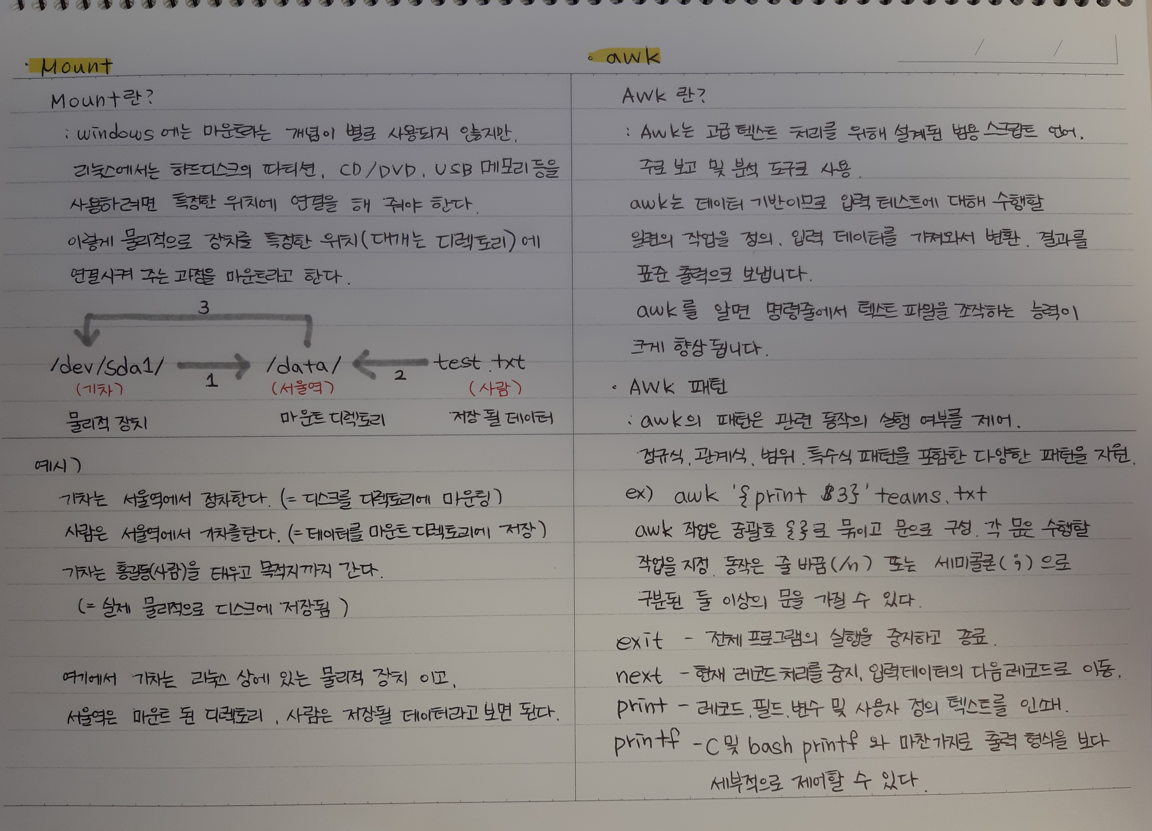 · Mount
Mount란?
: windows에는 마운트라는 개념이 별로 사용되지 않지만,
리눅스에서는 하드디스크의 파티션, CD/DVD, USB 메모리 등을
사용하려면 특정한 위치에 연결을 해 줘야 한다.
이렇게 물리적으로 장치를 특정한 위치(대개는 디렉토리)에
연결시켜 주는 과정을 마운트라고 한다.
3
/dev/sda1/ 1 /data/ 2 test.txt
(기차) (서울역) (사람)
물리적 장치 마운트 디렉토리 저장 될 데이터
예시)
기차는 서울역에서 정차한다. (= 디스크를 디렉토리에 마운팅)
사람은 서울역에서 기차를탄다. (= 데이터를 마운트 디렉토리에 저장)
기차는 홍길동(사람)을 태우고 목적지까지 간다.
(= 실제 물리적으로 디스크에 저장됨)
여기에서 기차는 리눅스 상에 있는 물리적 장치 이고,
서울역은 마운트 된 디렉토리, 사람은 저장될 데이터라고 보면 된다.
· awk
/ /
Awk 란?
: Awk는 고급 텍스트 처리를 위해 설계된 범용 스크립트 언어.
주로 보고 및 분석 도구로 사용.
awk는 데이터 기반이므로 입력 테스트에 대해 수행할
일련의 작업을 정의. 입력 데이터를 가져와서 변환. 결과를
표준 출력으로 보냅니다.
awk를 알면 명령줄에서 텍스트 파일을 조작하는 능력이
크게 향상 됩니다.
· AWK 패턴
: awk의 패턴은 관련 동작의 실행 여부를 제어.
정규식, 관계식, 범위, 특수식 패턴을 포함한 다양한 패턴을 지원.
ex) awk '{print $3}' teams.txt
awk 작업은 중괄호 {}로 묶이고 문으로 구성. 각 문은 수행할
작업을 지정. 동작은 줄 바꿈(/n) 또는 세미콜론(;)으로
구분된 둘 이상의 문을 가질 수 있다.
exit - 전체 프로그램의 실행을 중지하고 종료.
next - 현재 레코드 처리를 중지, 입력데이터의 다음레코드로 이동.
print - 레코드, 필드, 변수 및 사용자 정의 텍스트를 인쇄.
printf - C 및 bash printf 와 마찬가지로 출력 형식을 보다
세부적으로 제어할 수 있다.